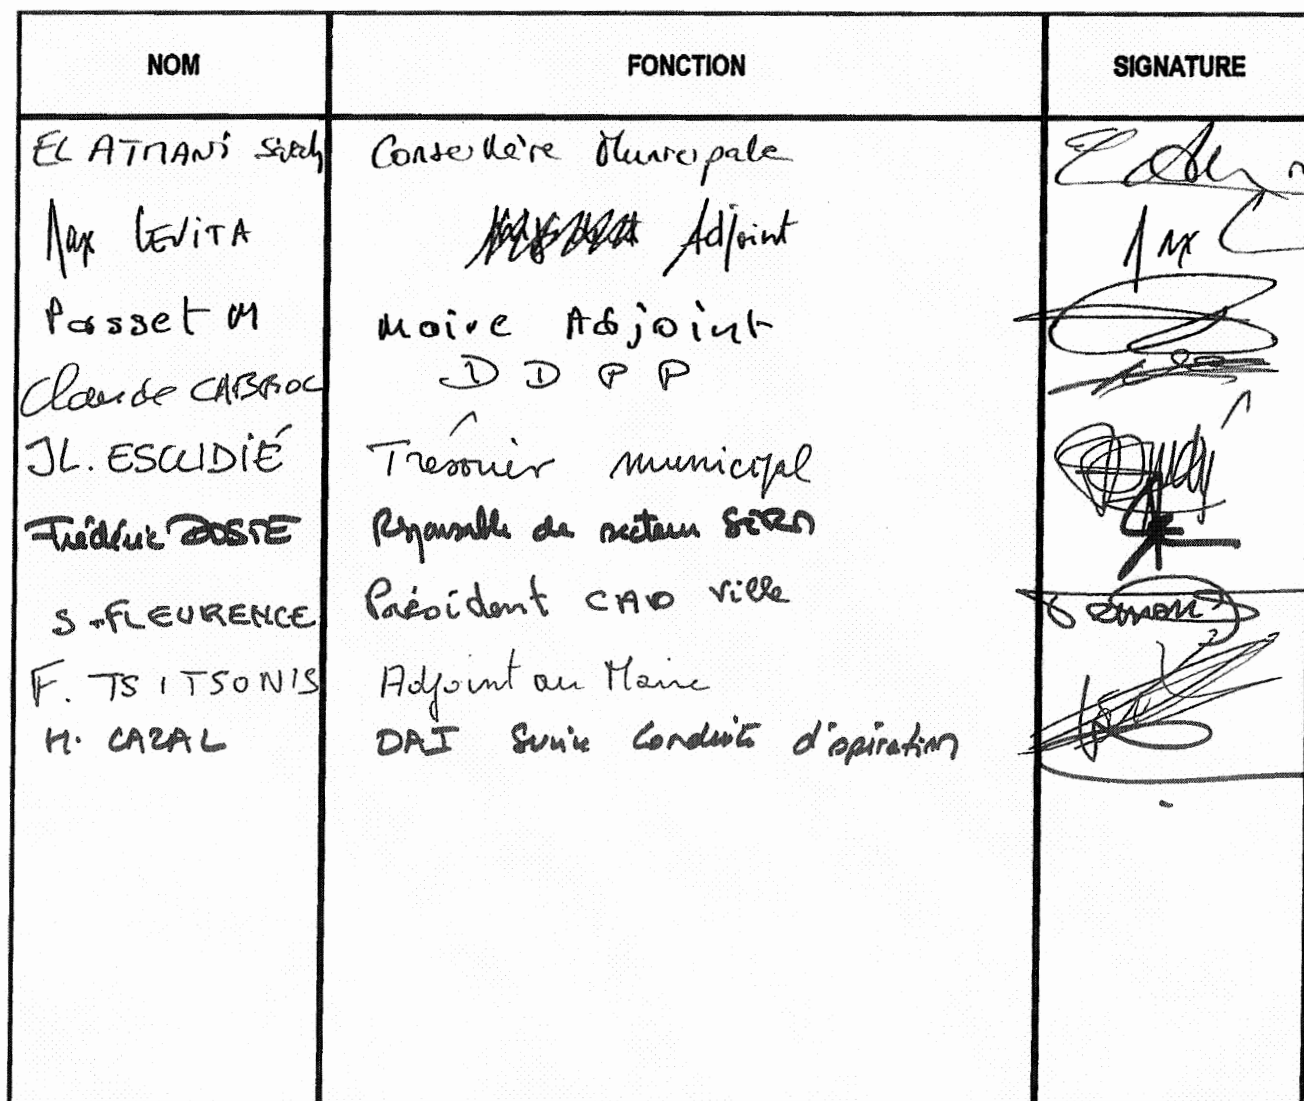 NOM FONCTION SIGNATURE
EL ATMANI Conseillère Municipale
Max LEVITA Adjoint Max
Passet M Maire Adjoint
Claude CABROL D D P P
JL. ESCUDIÉ Trésorier municipal
Frédéric Responsable de secteur
S. FLEURENCE Président CAO Ville
F. TSITSONIS Adjoint au Maire
H. CAZAL DAI Service Conduite d'opération